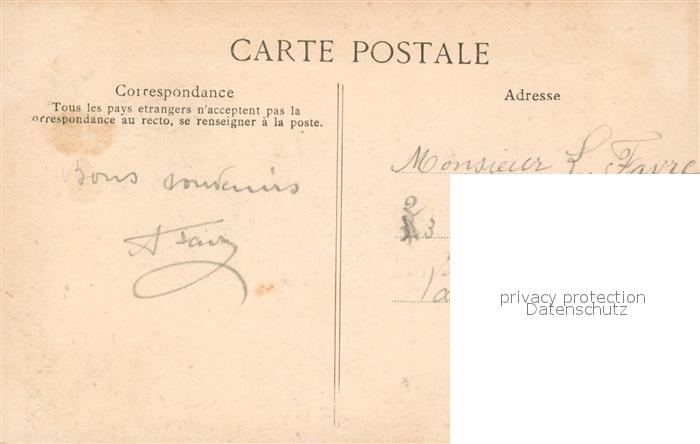 CARTE POSTALE
Correspondance
Tous les pays etrangers n'acceptent pas la
orrespondance au recto, se renseigner à la poste.
Bons souvenirs
A Favre
Adresse
Monsieur L. Favre
2
3
privacy protection
Datenschutz